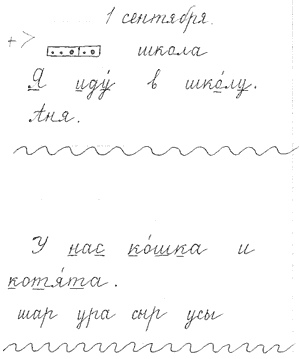 1 сентября.
школа
Я иду́ в шко́лу.
Аня.
У нас ко́шка и
котя́та.
шар ура сыр усы